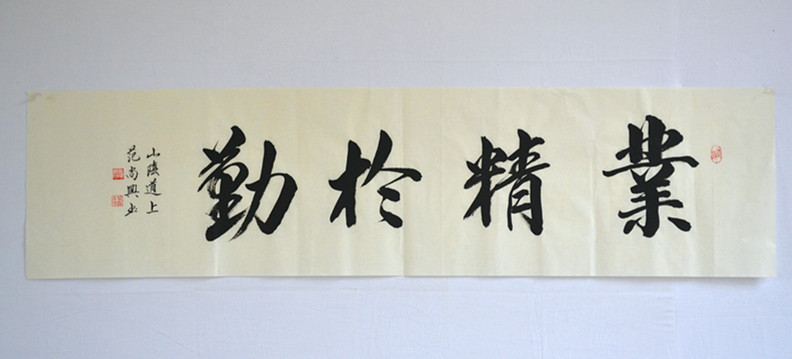 業精於勤
山陵道上
范尚興书